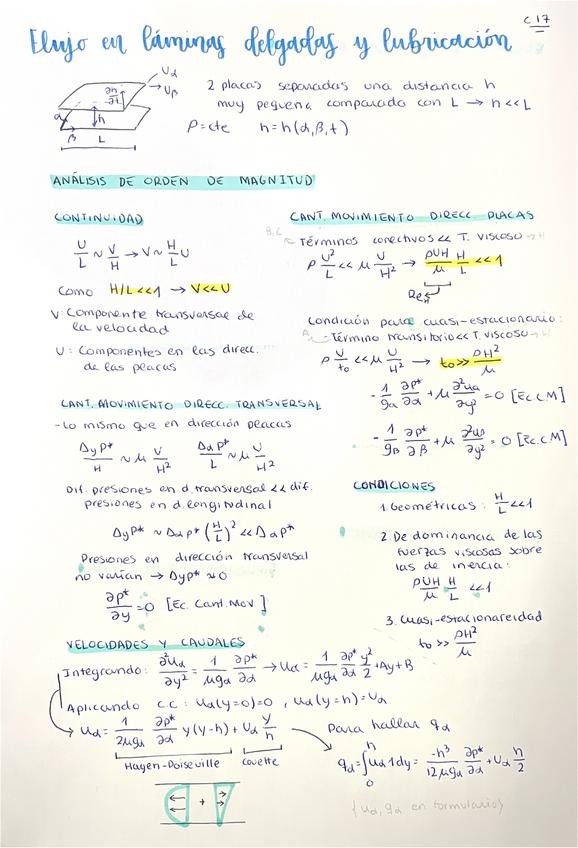 C17
Flujo en láminas delgadas y lubricación
Uα
Uβ
2 placas separadas una distancia h
muy pequeña comparado con L → h << L
ρ = cte    h = h(α, β, t)
α
h
β
L
ANÁLISIS DE ORDEN DE MAGNITUD
CONTINUIDAD
U/L ~ V/H → V ~ H/L U
Como H/L << 1 → V << U
V: Componente transversal de
la velocidad
U: Componentes en las direcc.
de las placas
CANT. MOVIMIENTO DIRECC. TRANSVERSAL
- Lo mismo que en dirección placas
ΔyP*/H ~ μ V/H²    ΔαP*/L ~ μ U/H²
Dif. presiones en d. transversal << dif.
presiones en d. longitudinal
ΔyP* ~ ΔαP* (H/L)² << ΔαP*
Presiones en dirección transversal
no varían → ΔyP* ≈ 0
∂P*/∂y = 0 [Ec. Cant. Mov.]
CANT. MOVIMIENTO DIRECC. PLACAS
Términos convectivos << T. viscoso
ρ U²/L << μ U/H² → ρUH/μ H/L << 1
Re_H
Condición para cuasi-estacionario:
Término transitorio << T. viscoso
ρ U/t₀ << μ U/H² → t₀ >> ρH²/μ
- 1/gα ∂P*/∂α + μ ∂²uα/∂y² = 0 [Ec. C.M]
- 1/gβ ∂P*/∂β + μ ∂²uβ/∂y² = 0 [Ec. C.M]
CONDICIONES
1. Geométricas: H/L << 1
2. De dominancia de las
fuerzas viscosas sobre
las de inercia:
ρUH/μ H/L << 1
3. Cuasi-estacionareidad
t₀ >> ρH²/μ
VELOCIDADES Y CAUDALES
Integrando: ∂²uα/∂y² = 1/μgα ∂P*/∂α → uα = 1/μgα ∂P*/∂α y²/2 + Ay + B
Aplicando c.c: uα(y=0) = 0, uα(y=h) = Uα
→ uα = 1/2μgα ∂P*/∂α y(y-h) + Uα y/h
Hagen-Poiseville    Couette
+
Para hallar qα
qα = ∫₀ʰ uα 1 dy = -h³/12μgα ∂P*/∂α + Uα h/2
{uα, qα en formulario}